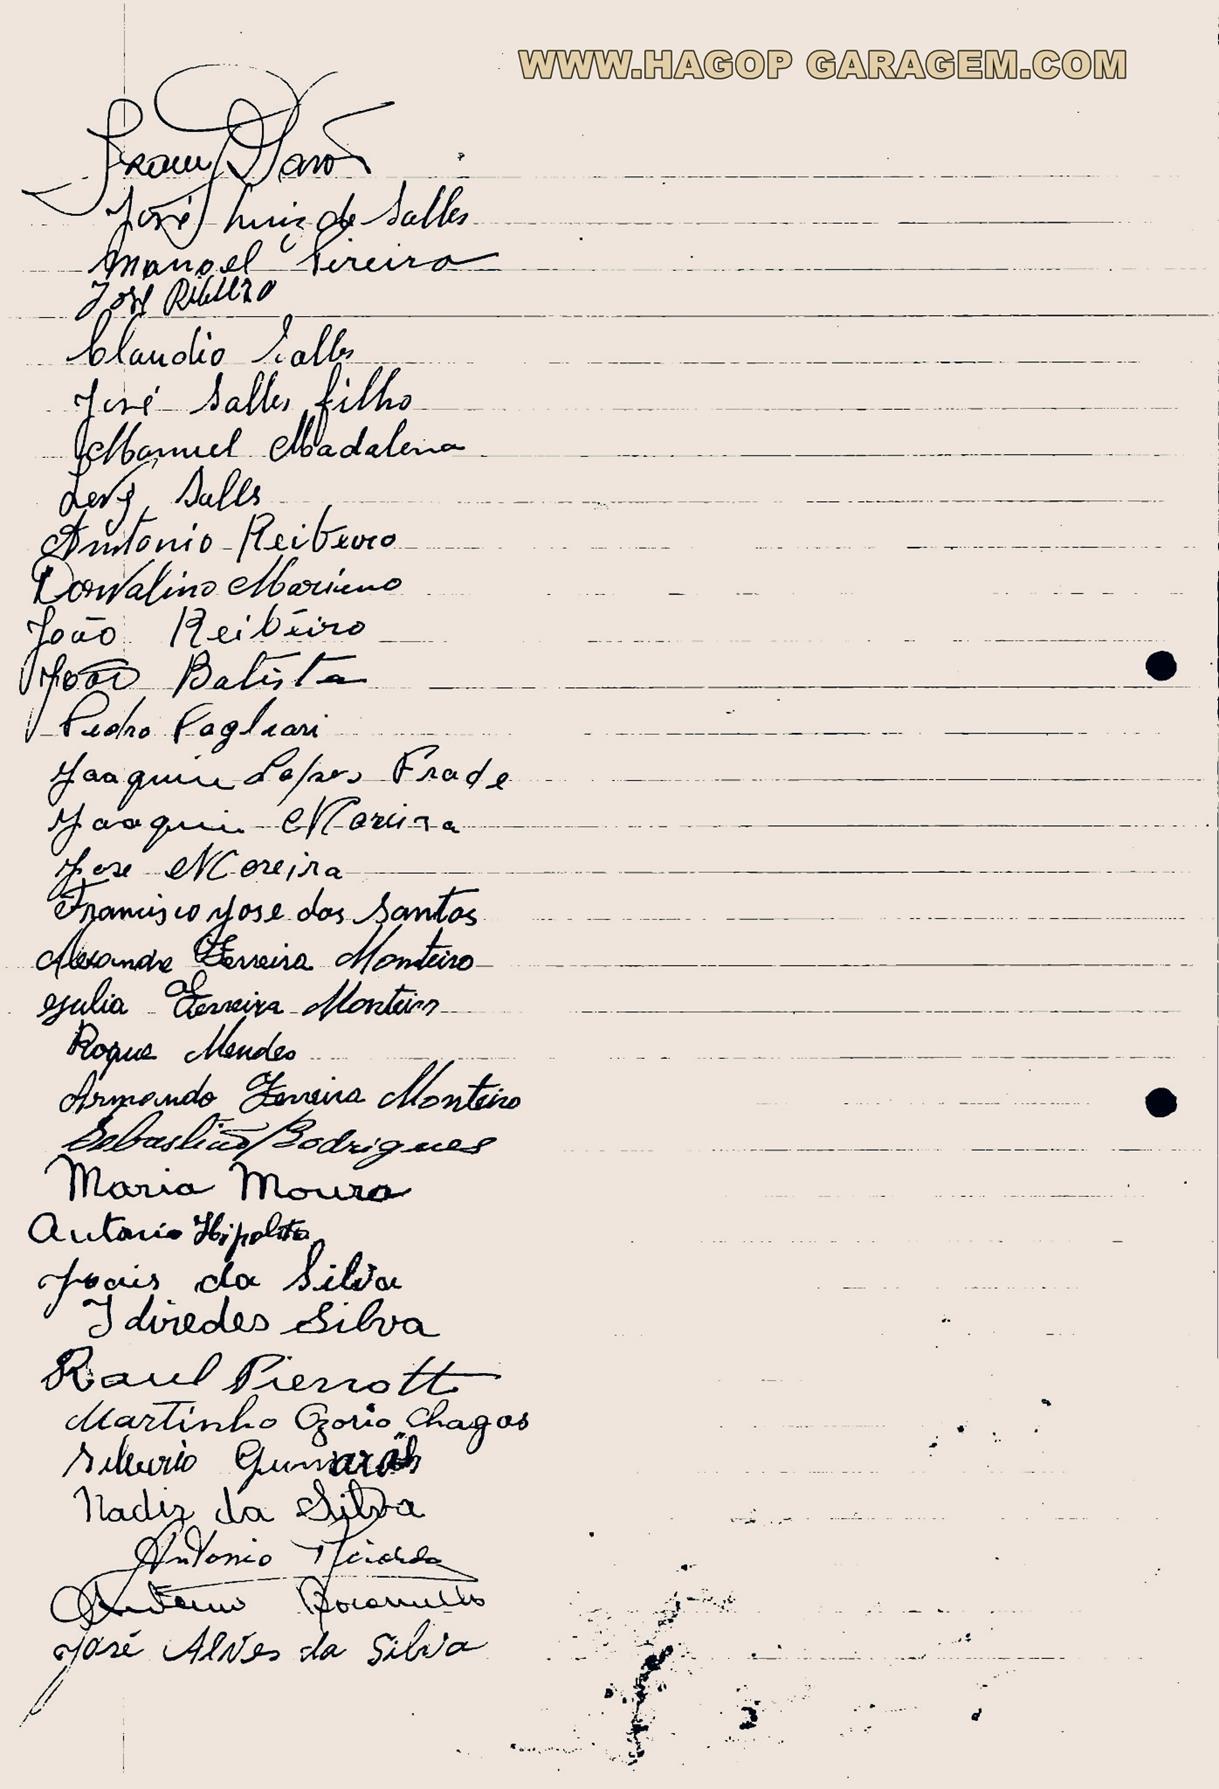 WWW.HAGOP GARAGEM.COM
José Luiz de Salles
Manoel Pireira
José Ribeiro
Claudio Salles
José Salles filho
Manuel Madalena
Levy Salles
Antonio Reibeiro
Dorvalino Mariano
João Reibeiro
João Batista
Pedro Pagliari
Joaquim Lopes Frade
Joaquim Moreira
Jose Moreira
Francisco Jose dos Santos
Alexandre Ferreira Monteiro
Julia Ferreira Monteiro
Roque Mendes
Armando Ferreira Monteiro
Sebastião Rodrigues
Maria Moura
Antonio Hipolito
da Silva
Idiredes Silva
Raul Pierrotti
Martinho Ozorio Chagas
Silverio
Nadir da Silva
Antonio
José Alves da Silva